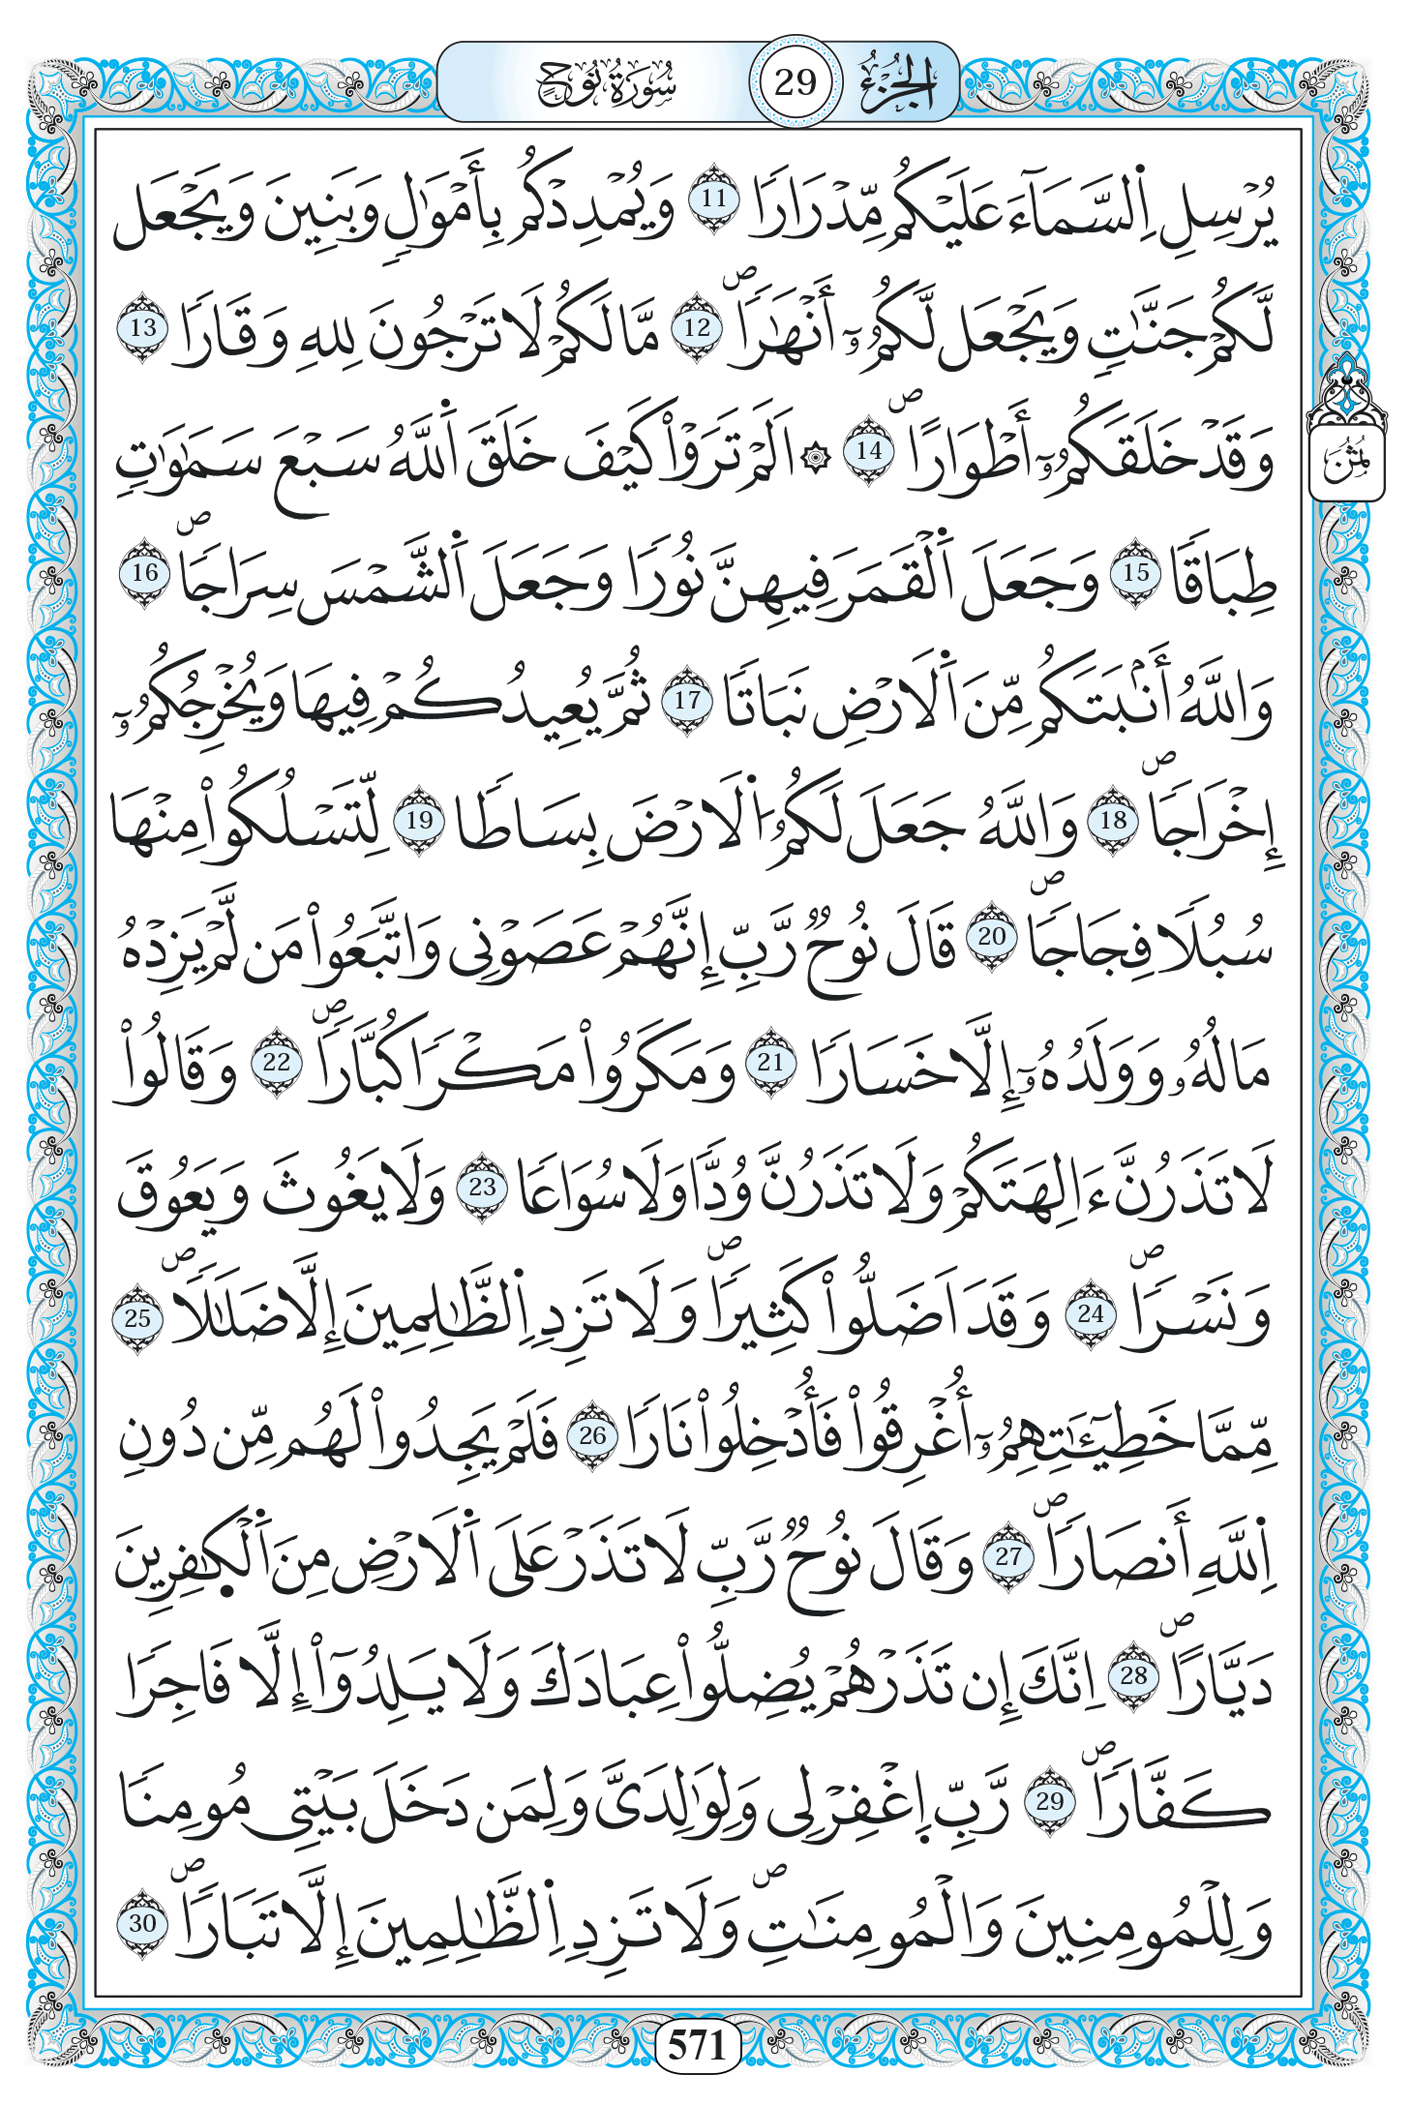 الجزء 29 سورة نوح
يُرْسِلِ اِ۬لسَّمَآءَ عَلَيْكُم مِّدْرَارٗا 11 وَيُمْدِدْكُم بِأَمْوَٰلٖ وَبَنِينَ وَيَجْعَل
لَّكُمْ جَنَّٰتٖ وَيَجْعَل لَّكُمُۥٓ أَنْهَٰرٗاۖ 12 مَّا لَكُمْ لَا تَرْجُونَ لِلهِ وَقَارٗا 13
وَقَدْ خَلَقَكُمُۥٓ أَطْوَارًاۖ 14 ۞ اَلَمْ تَرَوْاْ كَيْفَ خَلَقَ اَ۬للَّهُ سَبْعَ سَمَٰوَٰتٖ
ثُمُن
طِبَاقٗا 15 وَجَعَلَ اَ۬لْقَمَرَ فِيهِنَّ نُورٗا وَجَعَلَ اَ۬لشَّمْسَ سِرَاجٗاۖ 16
وَاللَّهُ أَنۢبَتَكُم مِّنَ اَ۬لَارْضِ نَبَاتٗا 17 ثُمَّ يُعِيدُكُمْ فِيهَا وَيُخْرِجُكُمُۥٓ
إِخْرَاجٗاۖ 18 وَاللَّهُ جَعَلَ لَكُمُ اُ۬لَارْضَ بِسَاطٗا 19 لِّتَسْلُكُواْ مِنْهَا
سُبُلٗا فِجَاجٗاۖ 20 قَالَ نُوحٞ رَّبِّ إِنَّهُمْ عَصَوْنِي وَاتَّبَعُواْ مَن لَّمْ يَزِدْهُ
مَالُهُۥ وَوَلَدُهُۥٓ إِلَّا خَسَارٗا 21 وَمَكَرُواْ مَكْرٗا كُبَّارٗاۖ 22 وَقَالُواْ
لَا تَذَرُنَّ ءَالِهَتَكُمْ وَلَا تَذَرُنَّ وُدّٗا وَلَا سُوَاعٗا 23 وَلَا يَغُوثَ وَيَعُوقَ
وَنَسْرٗاۖ 24 وَقَدَ اَضَلُّواْ كَثِيرٗاۖ وَلَا تَزِدِ اِ۬لظَّٰلِمِينَ إِلَّا ضَلَٰلٗاۖ 25
مِّمَّا خَطِيٓـَٰٔتِهِمُۥٓ أُغْرِقُواْ فَأُدْخِلُواْ نَارٗا 26 فَلَمْ يَجِدُواْ لَهُم مِّن دُونِ
اِ۬للَّهِ أَنصَارٗاۖ 27 وَقَالَ نُوحٞ رَّبِّ لَا تَذَرْ عَلَى اَ۬لَارْضِ مِنَ اَ۬لْكٰ۪فِرِينَ
دَيَّارًاۖ 28 اِنَّكَ إِن تَذَرْهُمْ يُضِلُّواْ عِبَادَكَ وَلَا يَلِدُوٓاْ إِلَّا فَاجِرٗا
كَفَّارٗاۖ 29 رَّبِّ اِ۪غْفِرْ لِي وَلِوَٰلِدَيَّ وَلِمَن دَخَلَ بَيْتِي مُومِنٗا
وَلِلْمُومِنِينَ وَالْمُومِنَٰتِۖ وَلَا تَزِدِ اِ۬لظَّٰلِمِينَ إِلَّا تَبَارٗاۖ 30
571